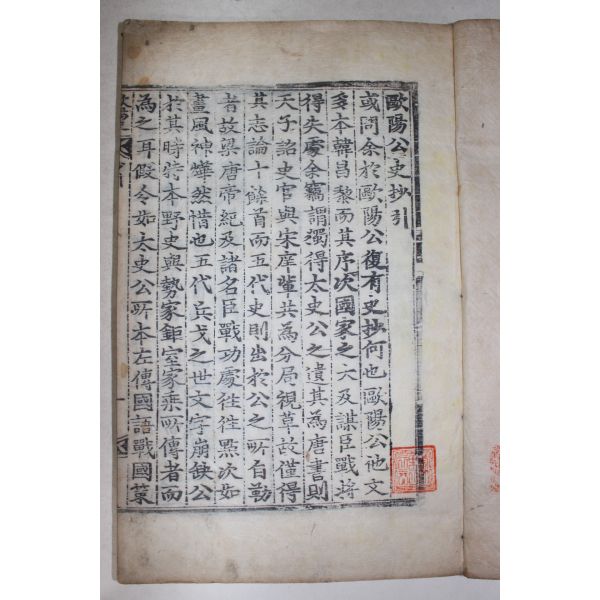 歐陽公史抄引
或問余於歐陽公復有史抄何也歐陽公他文
多本韓昌黎而其序次國家之大及謀臣戰將
得失處余竊謂獨得太史公之遺其為唐書則
天子詔史官與宋庠輩共為分局視草故僅得
其志論十餘首而五代史則出於公之所自勒
者故梁唐帝紀及諸名臣戰功處徃徃點次如
畫風神燁然惜也五代兵戈之世文字崩缺公
於其時特本野史與勢家鉅室家乘所傳者而
為之耳假令如太史公所本左傳國語戰國策